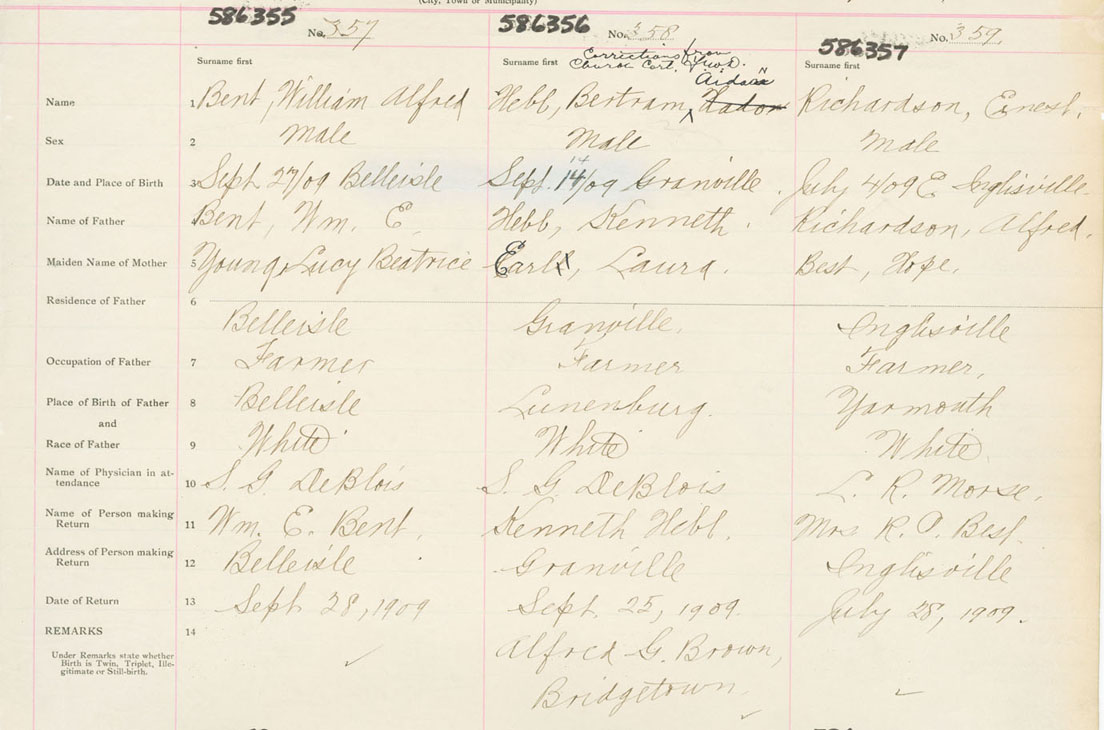 (City, Town or Municipality)
586355 No. 357
586356 No. 358
586357 No. 359
Surname first
Surname first Corrections from
Church Cert.
Surname first
Aidan
Name 1 Bent, William Alfred Hebb, Bertram, Richardson, Ernest.
Sex 2 Male Male Male
14
Date and Place of Birth 3 Sept 27/09 Belleisle Sept. 14/09 Granville. July 4/09 E Inglisville
Name of Father 4 Bent, Wm. E. Hebb, Kenneth. Richardson, Alfred.
Maiden Name of Mother 5 Young, Lucy Beatrice Earl, Laura. Best, Hope.
Residence of Father 6 Belleisle Granville. Inglisville
Occupation of Father 7 Farmer Farmer Farmer,
Place of Birth of Father 8 Belleisle Lunenburg. Yarmouth
and
Race of Father 9 White White White
Name of Physician in at-
tendance 10 S. G. DeBlois S. G. DeBlois L. R. Morse.
Name of Person making
Return 11 Wm. E. Bent. Kenneth Hebb. Mrs R. P. Best.
Address of Person making
Return 12 Belleisle Granville Inglisville
Date of Return 13 Sept 28, 1909 Sept. 25, 1909. July 28, 1909.
REMARKS 14 Alfred G. Brown,
Bridgetown
Under Remarks state whether
Birth is Twin, Triplet, Ille-
gitimate or Still-birth.